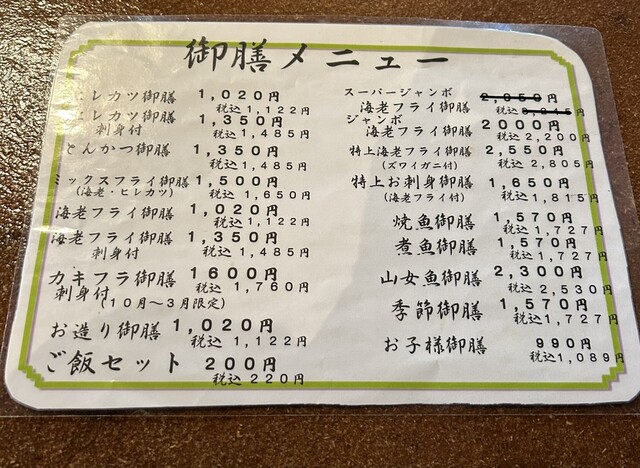 御膳メニュー
ヒレカツ御膳 1,020円
税込 1,122円
ヒレカツ御膳 1,350円
刺身付 税込 1,485円
とんかつ御膳 1,350円
税込 1,485円
ミックスフライ御膳 1,500円
(海老・ヒレカツ) 税込 1,650円
海老フライ御膳 1,020円
税込 1,122円
海老フライ御膳 1,350円
刺身付 税込 1,485円
カキフライ御膳 1600円
刺身付 税込 1,760円
(10月〜3月限定)
お造り御膳 1,020円
税込 1,122円
ご飯セット 200円
税込 220円
スーパージャンボ
海老フライ御膳 円
税込 円
ジャンボ
海老フライ御膳 2000円
税込 2,200円
特上海老フライ御膳 2,550円
(ズワイガニ付) 税込 2,805円
特上お刺身御膳 1,650円
(海老フライ付) 税込 1,815円
焼魚御膳 1,570円
税込 1,727円
煮魚御膳 1,570円
税込 1,727円
山女魚御膳 2,300円
税込 2,530円
季節御膳 1,570円
税込 1,727円
お子様御膳 990円
税込 1,089円